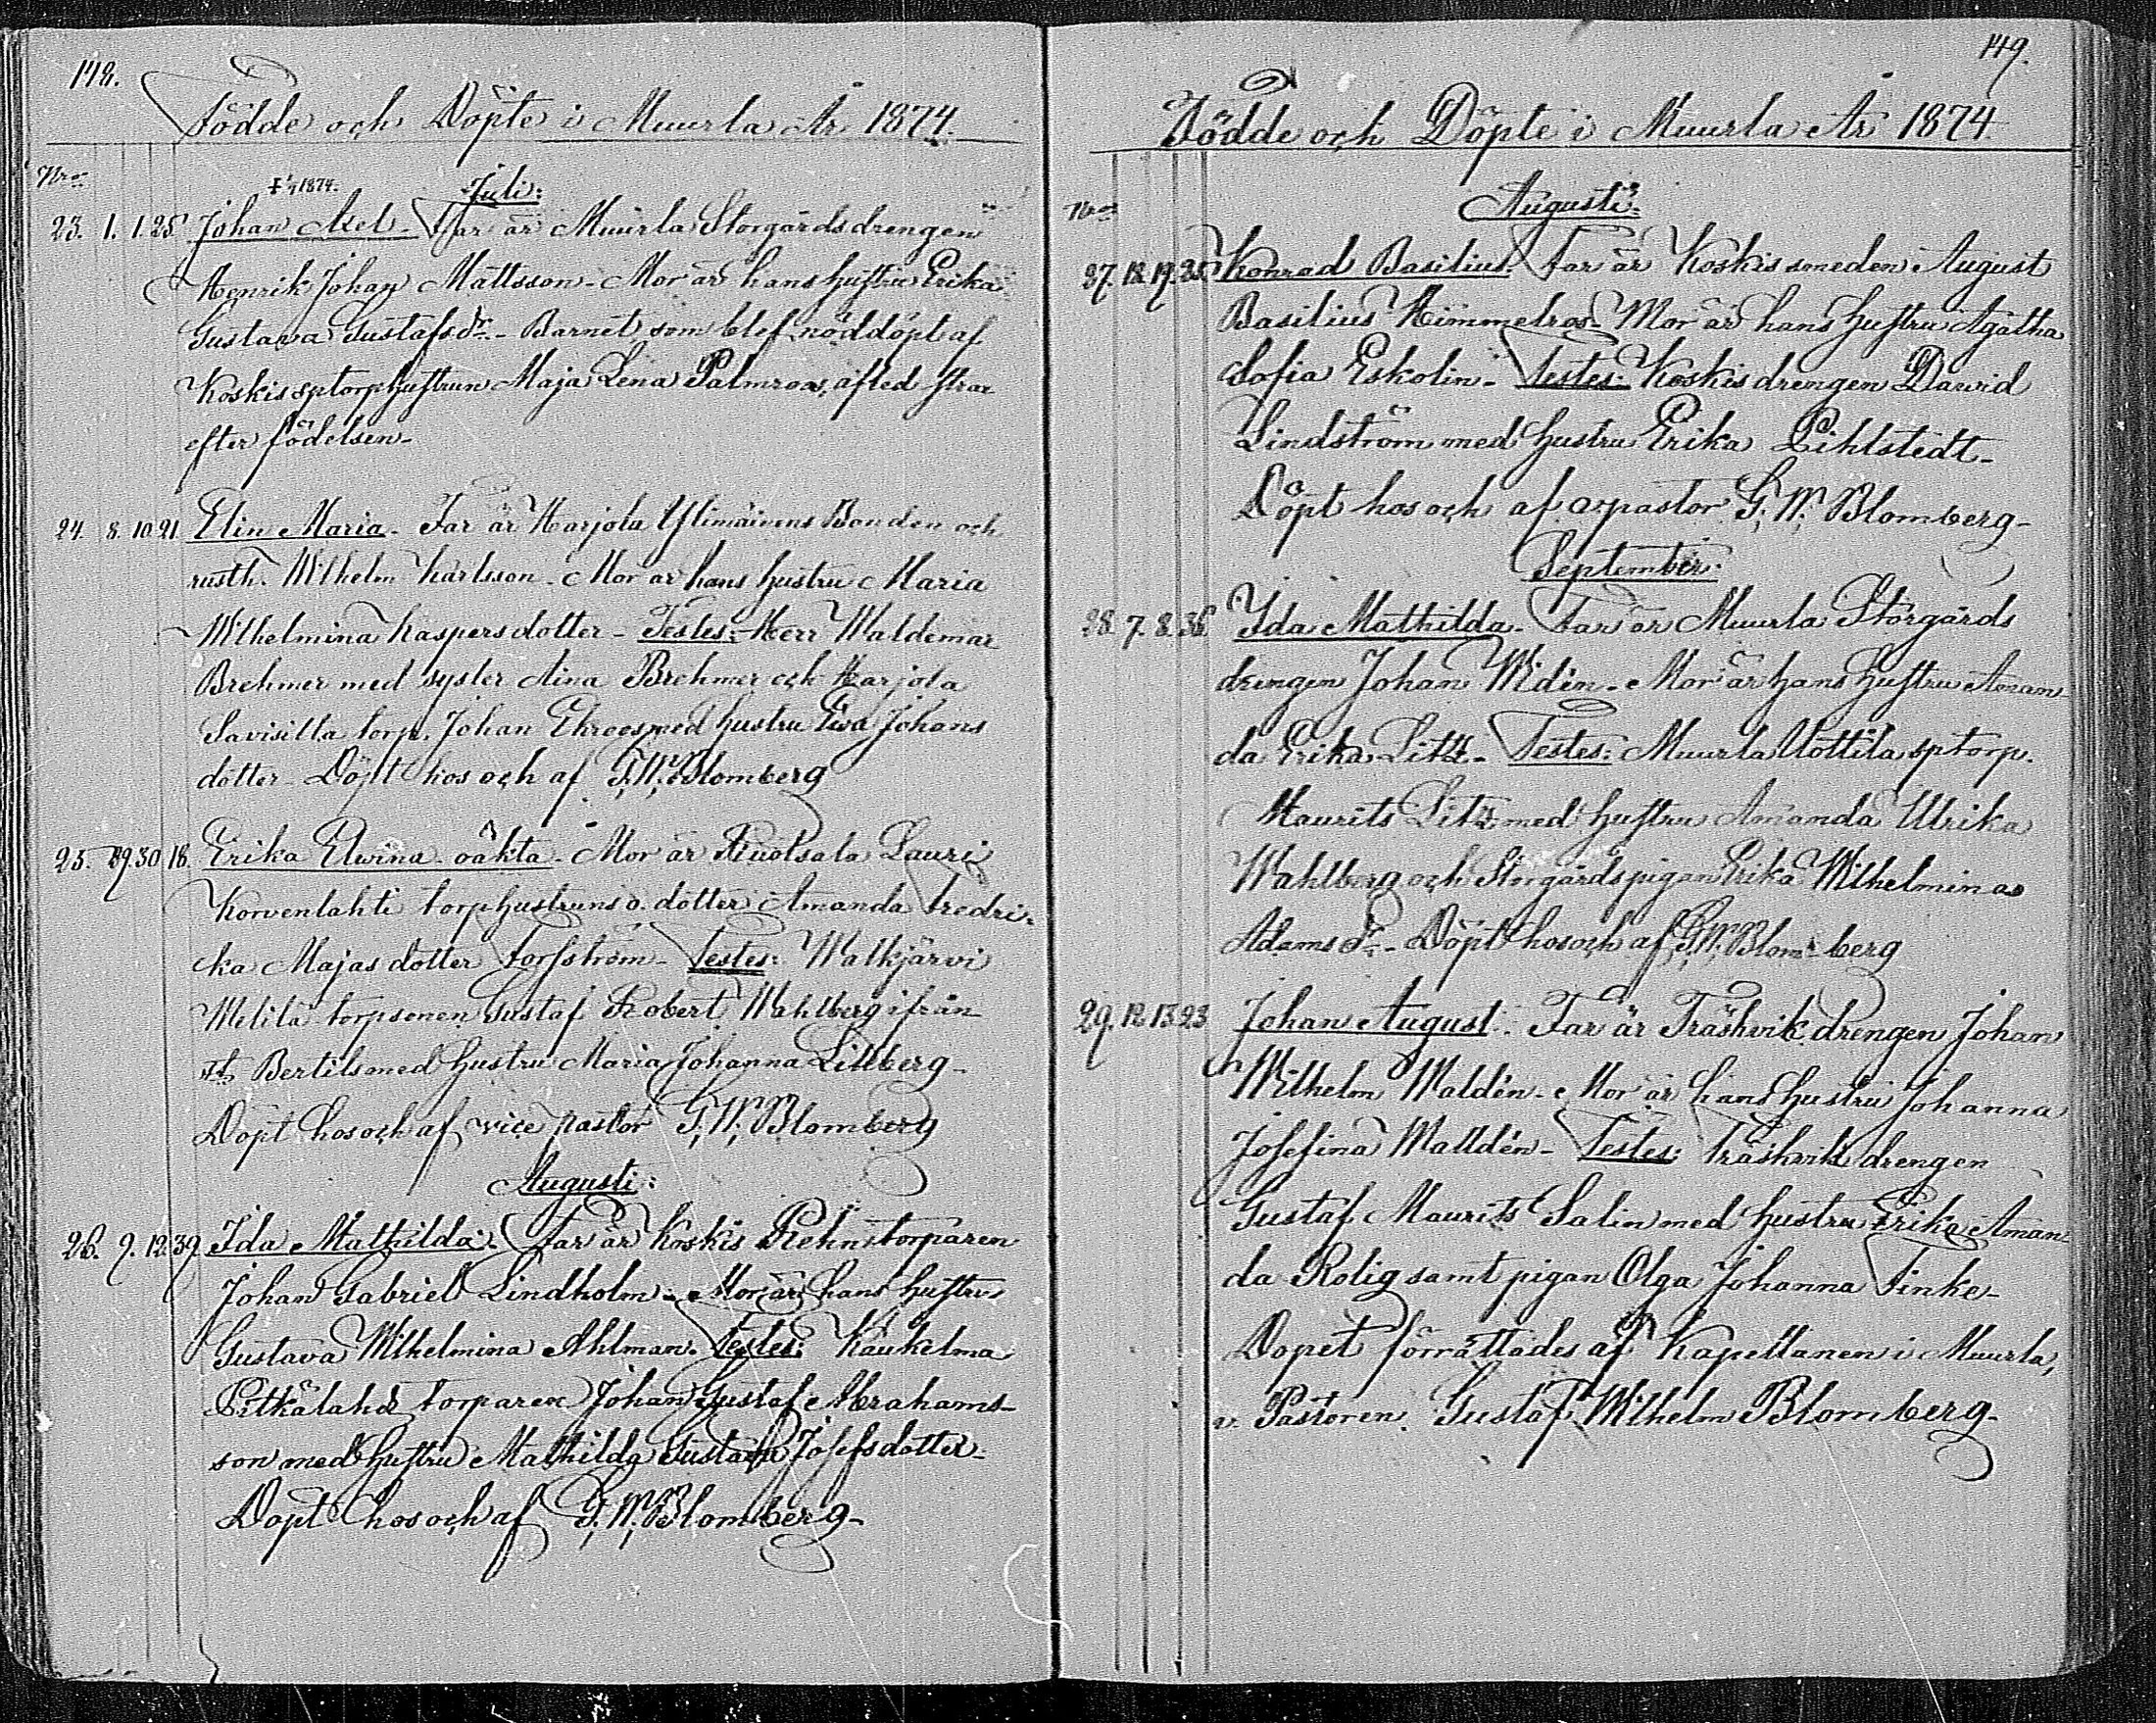 148.
Födde och Döpte i Muurla År 1874.
Nro
† 1/7 1874.
Juli:
23. 1. 1. 25 Johan Axel. Far är Muurla Storgårds drengen
Henrik Johan Mattsson. Mor är hans hustru Erika
Gustava Gustafsdr. Barnet som blef nöddöpt af
Koskis sptorphustrun Maja Lena Palmroos, afled strax
efter födelsen.
24. 8. 10. 21. Elin Maria. Far är Harjola Bonden och
rusth. Wilhelm Karlsson. Mor är hans hustru Maria
Wilhelmina Kaspersdotter. Testes: Herr Waldemar
Brehmer med syster Aina Brehmer och Harjola
Savisilta torp. Johan Ehroos med hustru Eva Johans
dotter. Döpt hos och af G. W. Blomberg
25. 29. 30. 18. Erika Elwina. oäkta. Mor är Ruotsala Lauri
Korvenlahti torphustruns o. dotter Amanda Fredri-
ka Majasdotter Forsström. Testes: Walkjärvi
Melilä torpsonen Gustaf Robert Wahlberg ifrån
St. Bertils med hustru Maria Johanna Lilleberg.
Döpt hos och af vice pastor G. W. Blomberg
Augusti:
26. 9. 12. 39. Ida Mathilda. Far är Koskis Rehn torparen
Johan Gabriel Lindholm. Mor är hans hustru
Gustava Wilhelmina Ahlman. Testes: Kaukelma
Pitkälahti torparen Johan Gustaf Abrahams-
son med hustru Mathilda Gustava Josefsdotter.
Döpt hos och af G. W. Blomberg.
149.
Födde och Döpte i Muurla År 1874
Augusti:
Nro
27. 18. 19. Konrad Basilius. Far är Koskis smeden August
Basilius Himmelroos. Mor är hans hustru Agatha
Sofia Eskolin. Testes: Koskis drengen Dawid
Lindström med hustru Erika Pihlstedt.
Döpt hos och af v. pastor G. W. Blomberg.
September:
28. 7. 8. 36 Ida Mathilda. Far är Muurla Storgårds
drengen Johan Widén. Mor är hans hustru Aman
da Erika Litz. Testes: Muurla Uottila sptorp.
Maurits Litz med hustru Amanda Ulrika
Wahlberg och Storgårds pigan Erika Wilhelmina
Adamsdr. Döpt hos och af G. W. Blomberg
29. 12. 13. 23 Johan August. Far är Träskvik drengen Johan
Wilhelm Waldén. Mor är hans hustru Johanna
Josefina Walldén. Testes: Träskvik drengen
Gustaf Maurits Salin med hustru Erika Aman
da Rolig samt pigan Olga Johanna Finke.
Dopet förrättades af Kapellanen i Muurla,
v. Pastoren Gustaf Wilhelm Blomberg.